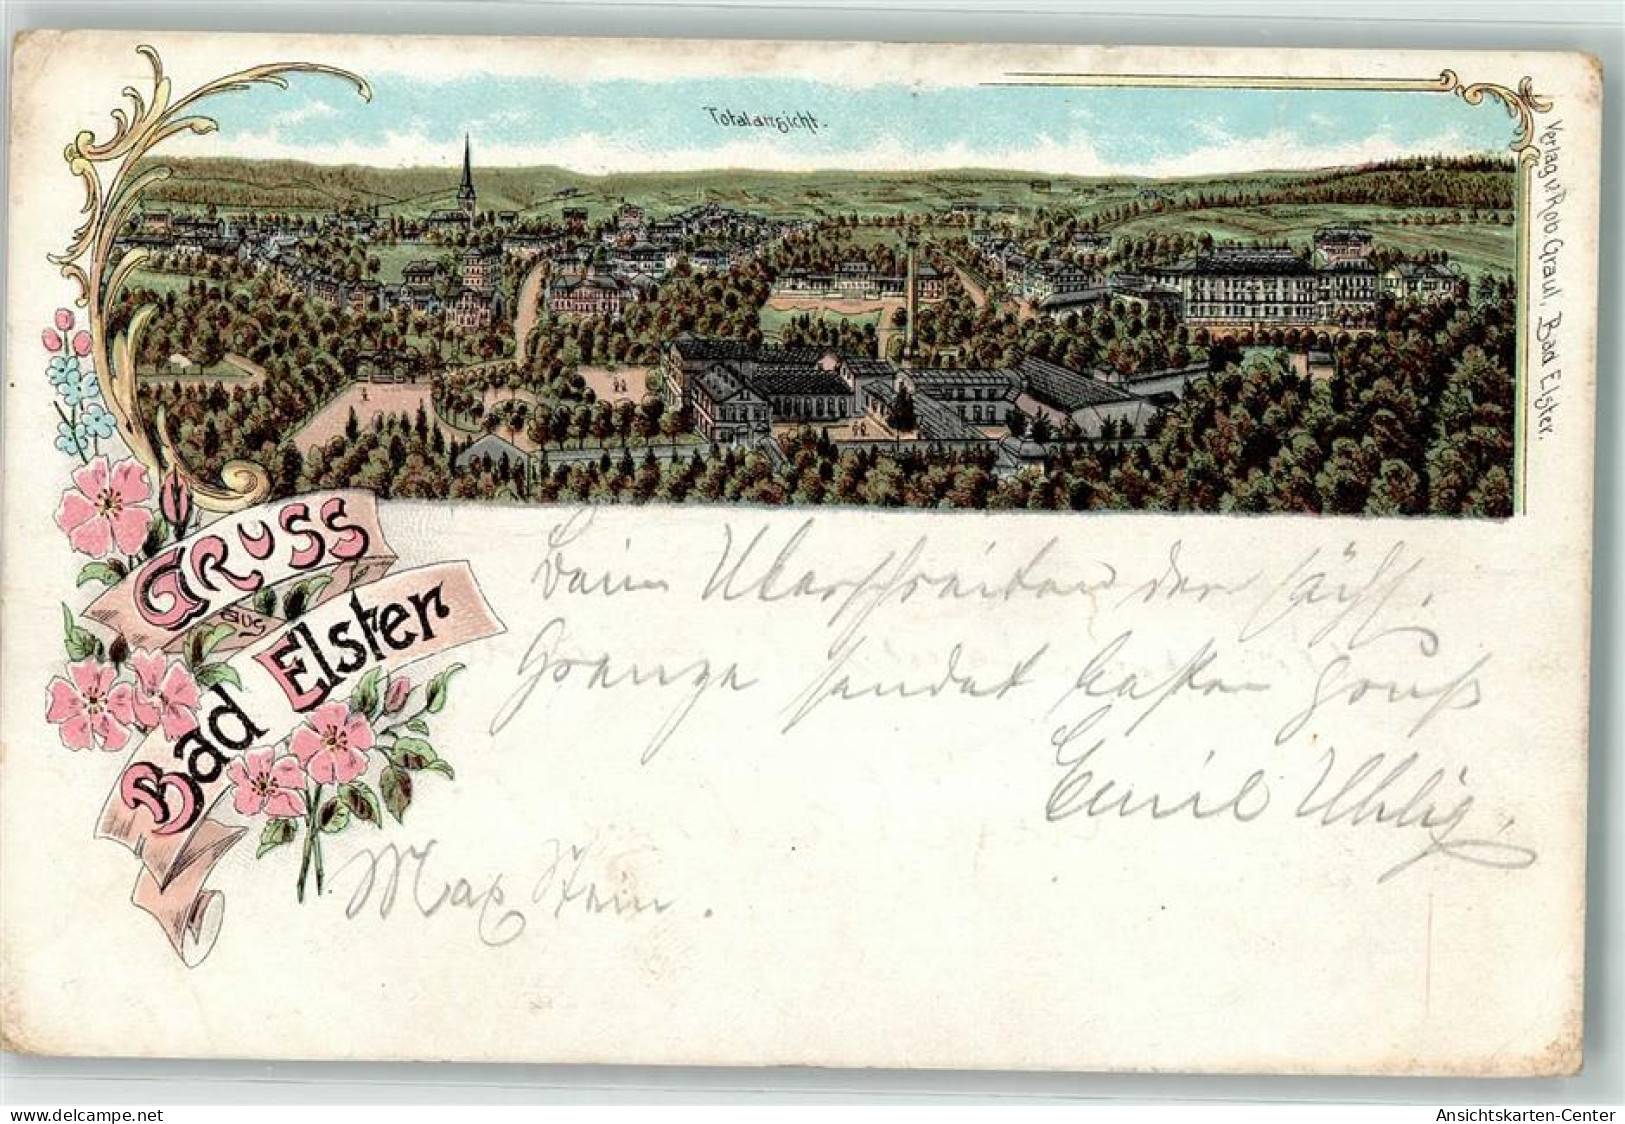 Totalansicht.
Verlag v. Rob. Graul, Bad Elster.
GRUSS
aus
Bad Elster
Beim Überschreiten der sächs.
Grenze sendet besten Gruß
Emil Uhlig.
Max Stein.
delcampe.net
Ansichtskarten-Center